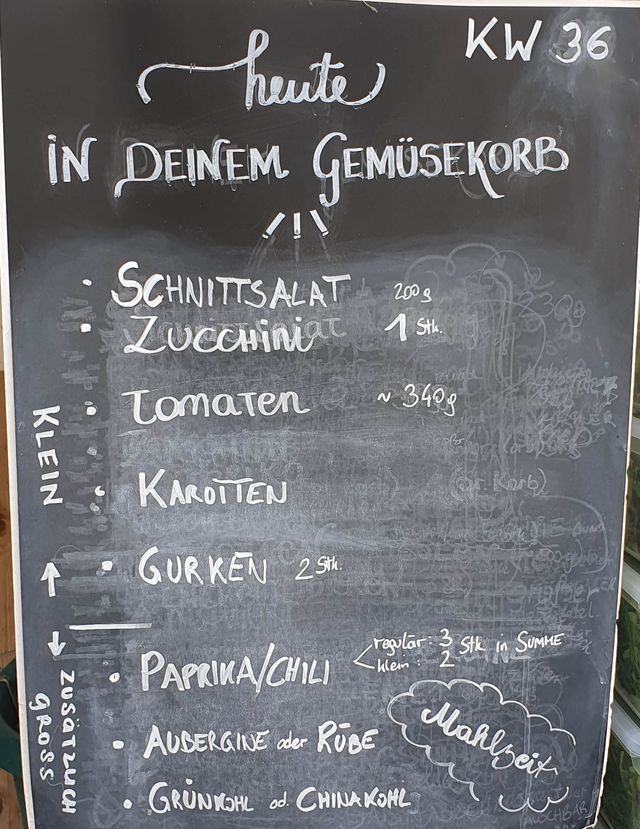 KW 36
heute
IN DEINEM GEMÜSEKORB
• SCHNITTSALAT 200g
• ZUCCHINI 1 Stk.
• TOMATEN ~ 340g
KLEIN
• KAROTTEN
(gr. Korb)
• GURKEN 2 Stk.
• PAPRIKA/CHILI < regulär: 3 Stk in SUMME
klein: 2
ZUSÄTZLICH
GROSS
• AUBERGINE oder RÜBE
Mahlzeit
• GRÜNKOHL od. CHINAKOHL